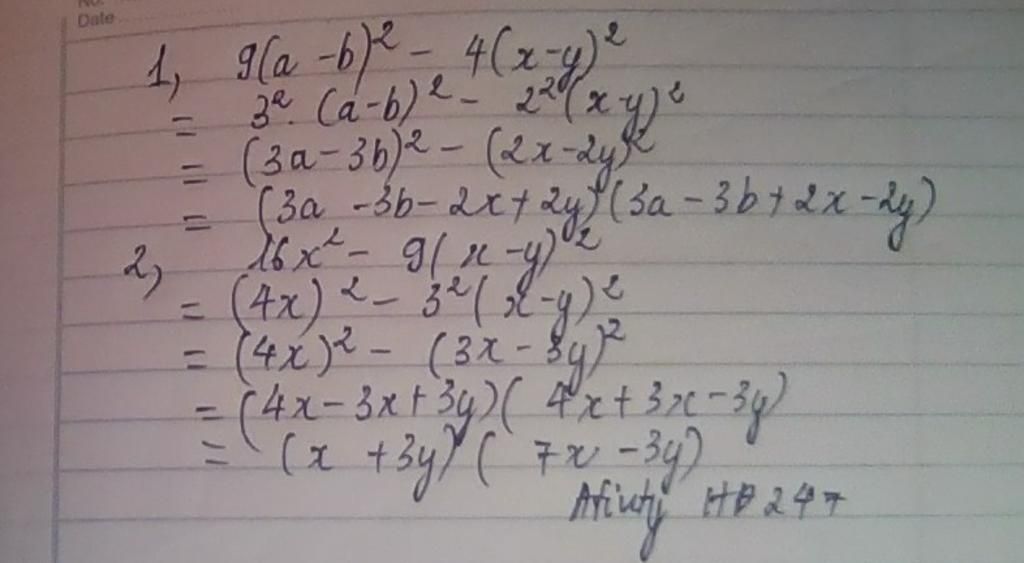 No.
Date
1, 9(a - b)² - 4(x-y)²
= 3². (a-b)² - 2²(x-y)²
= (3a-3b)² - (2x-2y)²
= (3a -3b-2x+2y)(3a-3b+2x-2y)
2, 16x² - 9(x-y)²
= (4x)² - 3²(x-y)²
= (4x)² - (3x-3y)²
= (4x-3x+3y)(4x+3x-3y)
= (x +3y)(7x -3y)